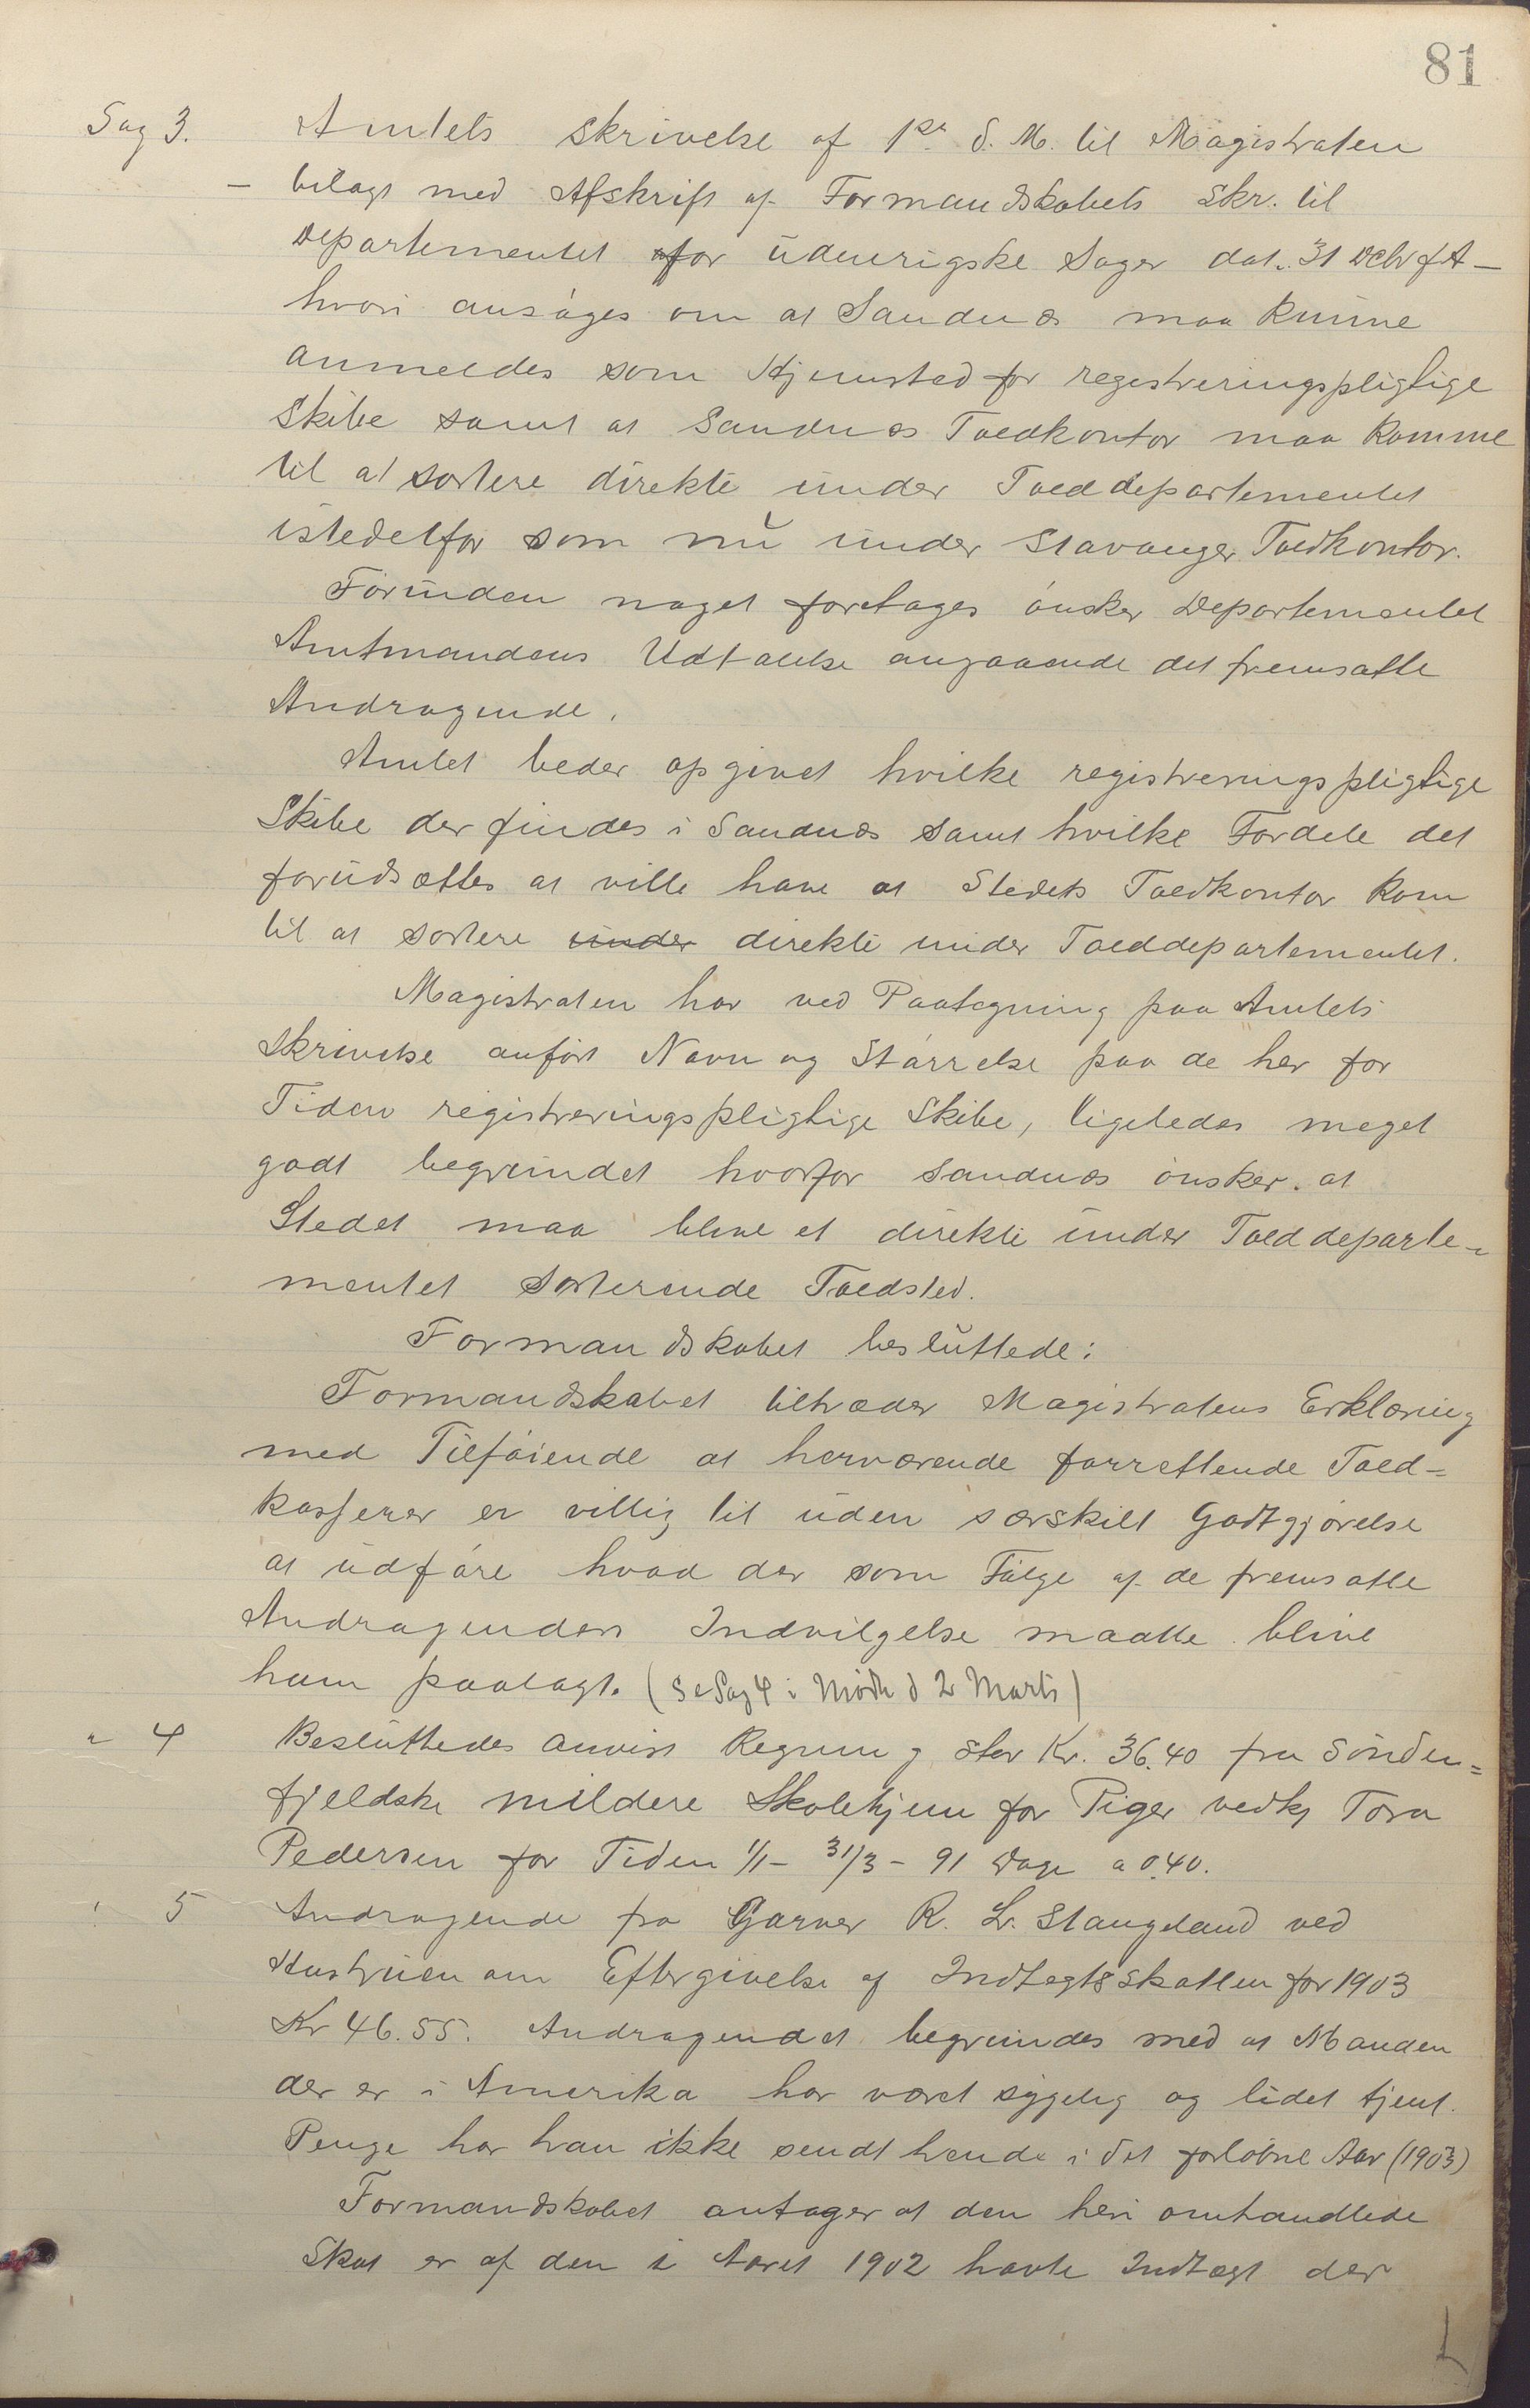 81
Sag 3. Amtets skrivelse af 1ste d. M. til Magistraten
– bilagt med Afskrift af Formandskabets Skr. til
Departementet for udenrigske Sager dat. 31 Decbr f A –
hvori ansøges om at Sandnæs maa kunne
anmeldes som Hjemsted for registreringspligtige
Skibe samt at Sandnæs Toldkontor maa komme
til at sortere direkte under Tolddepartementet
istedetfor som nu under Stavanger Toldkontor.
Forinden noget foretages ønsker Departementet
Amtmandens Udtalelse angaaende det fremsatte
Andragende.
Amtet beder opgivet hvilke registreringspligtige
Skibe der findes i Sandnæs samt hvilke Fordele det
forudsættes at ville have at Stedets Toldkontor kom
til at sortere under direkte under Tolddepartementet.
Magistraten har ved Paategning paa Amtets
Skrivelse anført Navn og Størrelse paa de her for
Tiden registreringspligtige Skibe, ligeledes meget
godt begrundet hvorfor Sandnæs ønsker at
Stedet maa blive et direkte under Tolddeparte-
mentet sorterende Toldsted.
Formandskabet besluttede:
Formandskabet tiltræder Magistratens Erklæring
med Tilføiende at herværende forrettende Told=
kasserer er villig til uden særskilt Godtgjørelse
at udføre hvad der som Følge af de fremsatte
Andragenders Indvilgelse maatte blive
ham paalagt. (Se Sag 4 i Møde d 2 Marts)
" 4 Besluttedes anvist Regning stor Kr. 36.40 fra Sønden=
fjeldske mildere Skolehjem for Piger vedk Tora
Pedersen for Tiden 1/1 – 31/3 – 91 Dage a 0.40.
" 5 Andragende fra Garver R. L. Stangeland ved
Hustruen om Eftergivelse af Indtægtsskatten for 1903
Kr 46.55. Andragendet begrundes med at Manden
der er i Amerika har været sygelig og lidet tjent.
Penge har han ikke sendt hende i det forløbne Aar (1903)
Formandskabet antager at den heri omhandlede
Skat er af den i Aaret 1902 havte Indtægt der